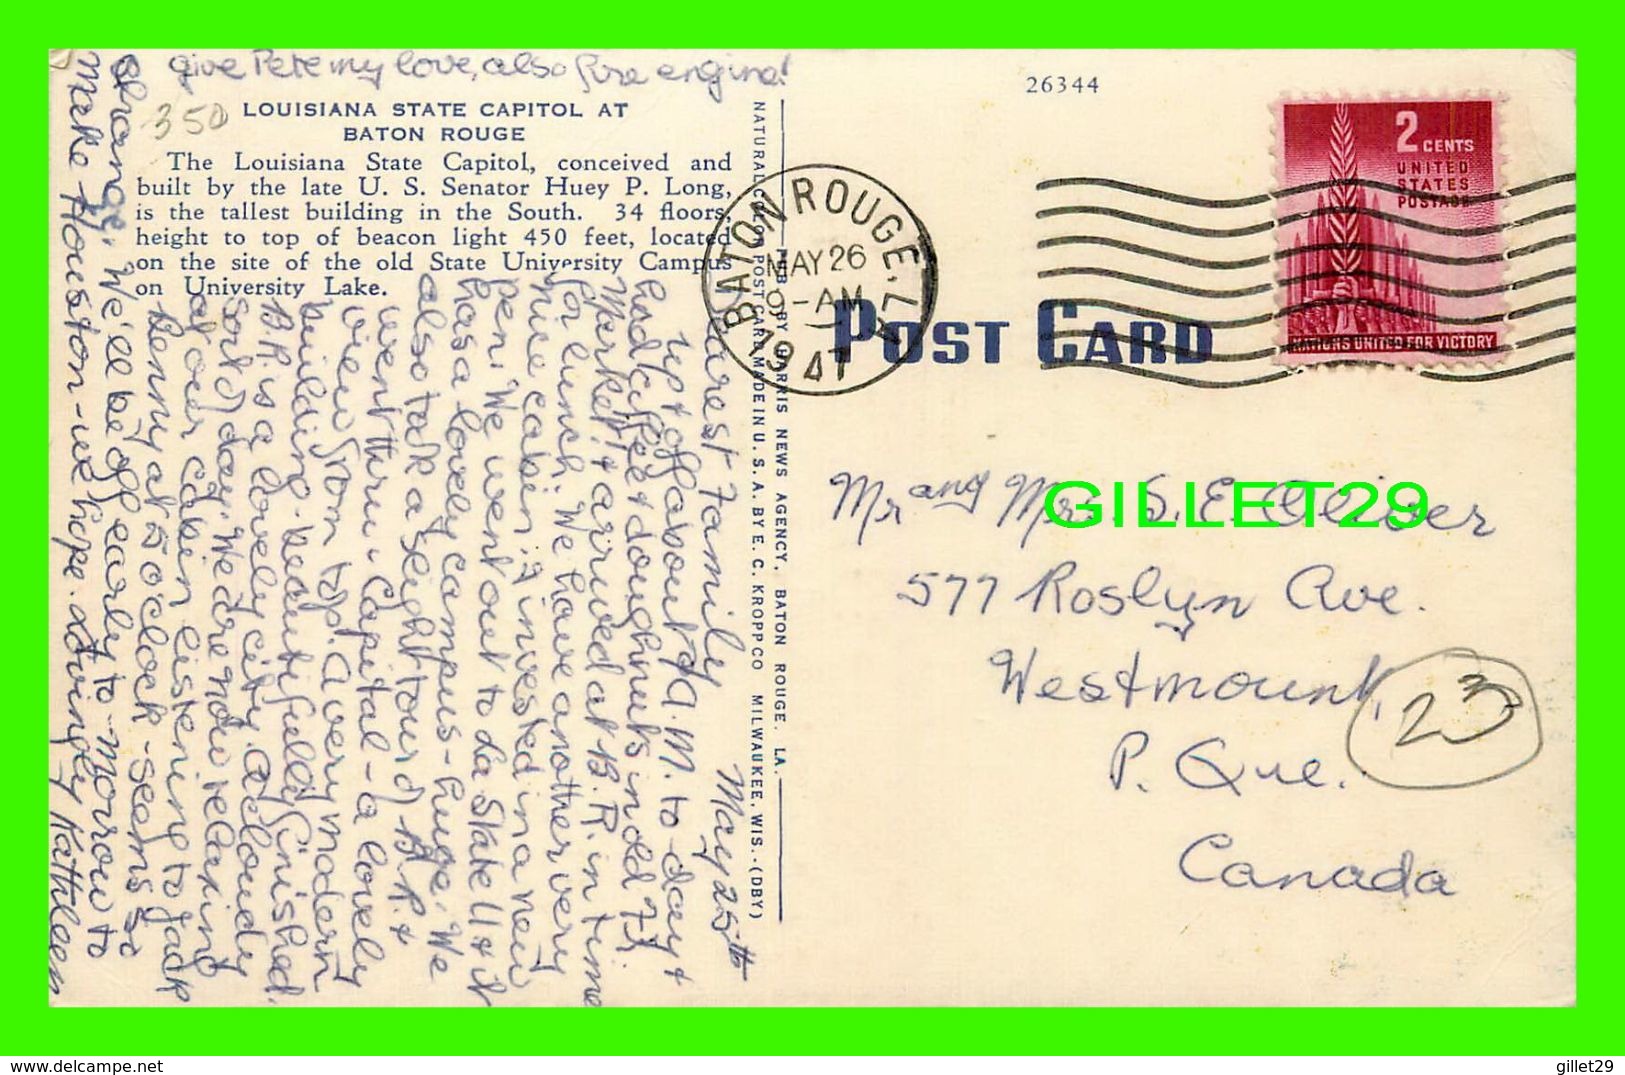 give Pete my love, also fire engine!
350
LOUISIANA STATE CAPITOL AT
BATON ROUGE
The Louisiana State Capitol, conceived and
built by the late U. S. Senator Huey P. Long,
is the tallest building in the South. 34 floors,
height to top of beacon light 450 feet, located
on the site of the old State University Campus
on University Lake.
May 25th
Dearest Family
up & off about 7 A.M. to-day &
had coffee & doughnuts in old Fr.
Market & arrived at B.R. in time
for lunch. We have another very
nice cabin. I invested in a new
pen. We went out to La State U & it
has a lovely campus - huge. We
also took a slight tour of B.R. &
went thru Capital - a lovely
view from top. A very modern
building - beautifully finished.
B.R. is a lovely city. A cloudy
sort of day. We are now relaxing
at our cabin listening to Jack
Benny at 5 o'clock - seems so
strange. We'll be off early to-morrow to
make Houston - we hope. Lovingly Kathleen
NATURAL COLOR POST CARD MADE IN U. S. A. BY E. C. KROPP CO MILWAUKEE, WIS.-(DBY)
PUB. BY HARRIS NEWS AGENCY, BATON ROUGE, LA.
26344
BATON ROUGE, LA
MAY 26
9-AM
1947
POST CARD
2 CENTS
UNITED
STATES
POSTAGE
NATIONS UNITED FOR VICTORY
Mr and Mrs. S. E. Oliver
GILLET29
577 Roslyn Ave.
Westmount,
P. Que.
23
Canada
delcampe.net
gillet29